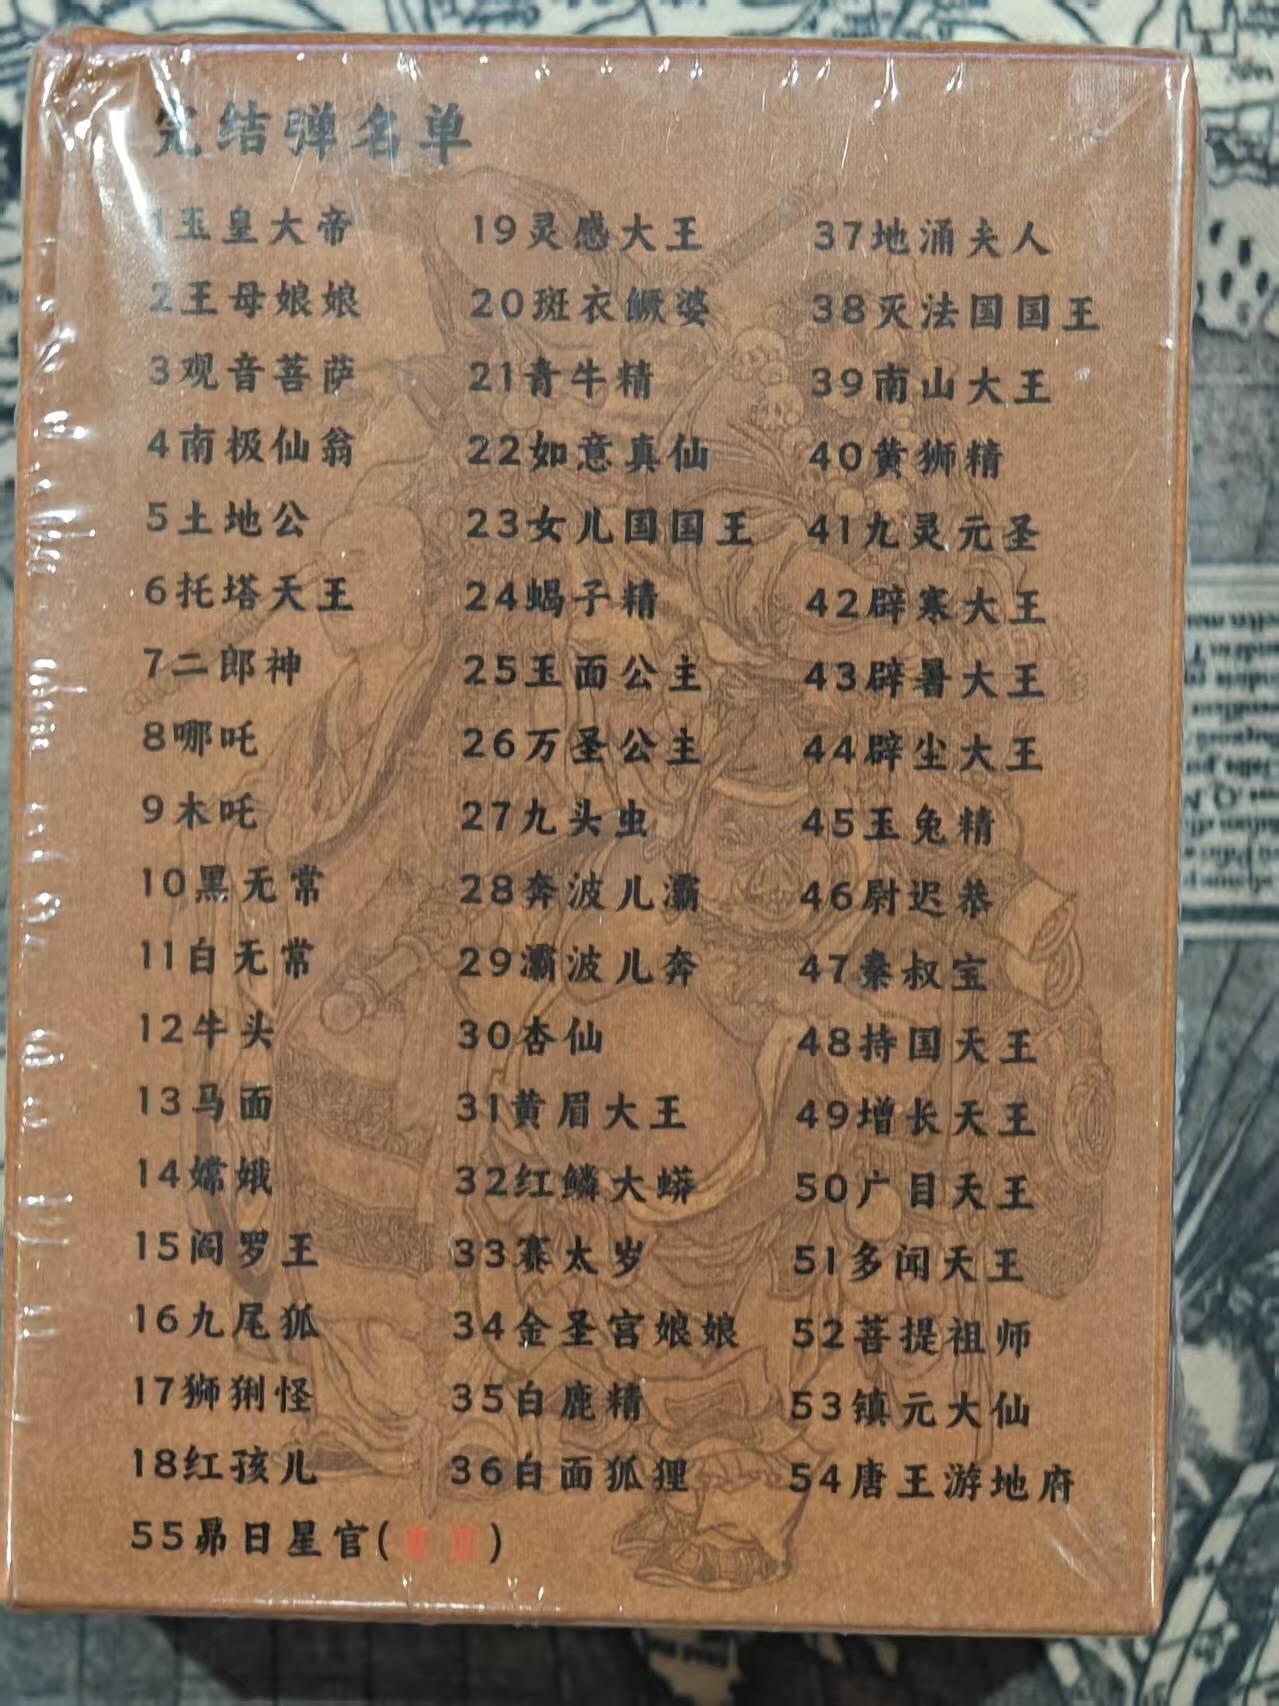 完结弹名单
1玉皇大帝
2王母娘娘
3观音菩萨
4南极仙翁
5土地公
6托塔天王
7二郎神
8哪吒
9木吒
10黑无常
11白无常
12牛头
13马面
14嫦娥
15阎罗王
16九尾狐
17狮猁怪
18红孩儿
19灵感大王
20斑衣鳜婆
21青牛精
22如意真仙
23女儿国国王
24蝎子精
25玉面公主
26万圣公主
27九头虫
28奔波儿灞
29灞波儿奔
30杏仙
31黄眉大王
32红鳞大蟒
33赛太岁
34金圣宫娘娘
35白鹿精
36白面狐狸
37地涌夫人
38灭法国国王
39南山大王
40黄狮精
41九灵元圣
42辟寒大王
43辟暑大王
44辟尘大王
45玉兔精
46尉迟恭
47秦叔宝
48持国天王
49增长天王
50广目天王
51多闻天王
52菩提祖师
53镇元大仙
54唐王游地府
55昴日星官( )